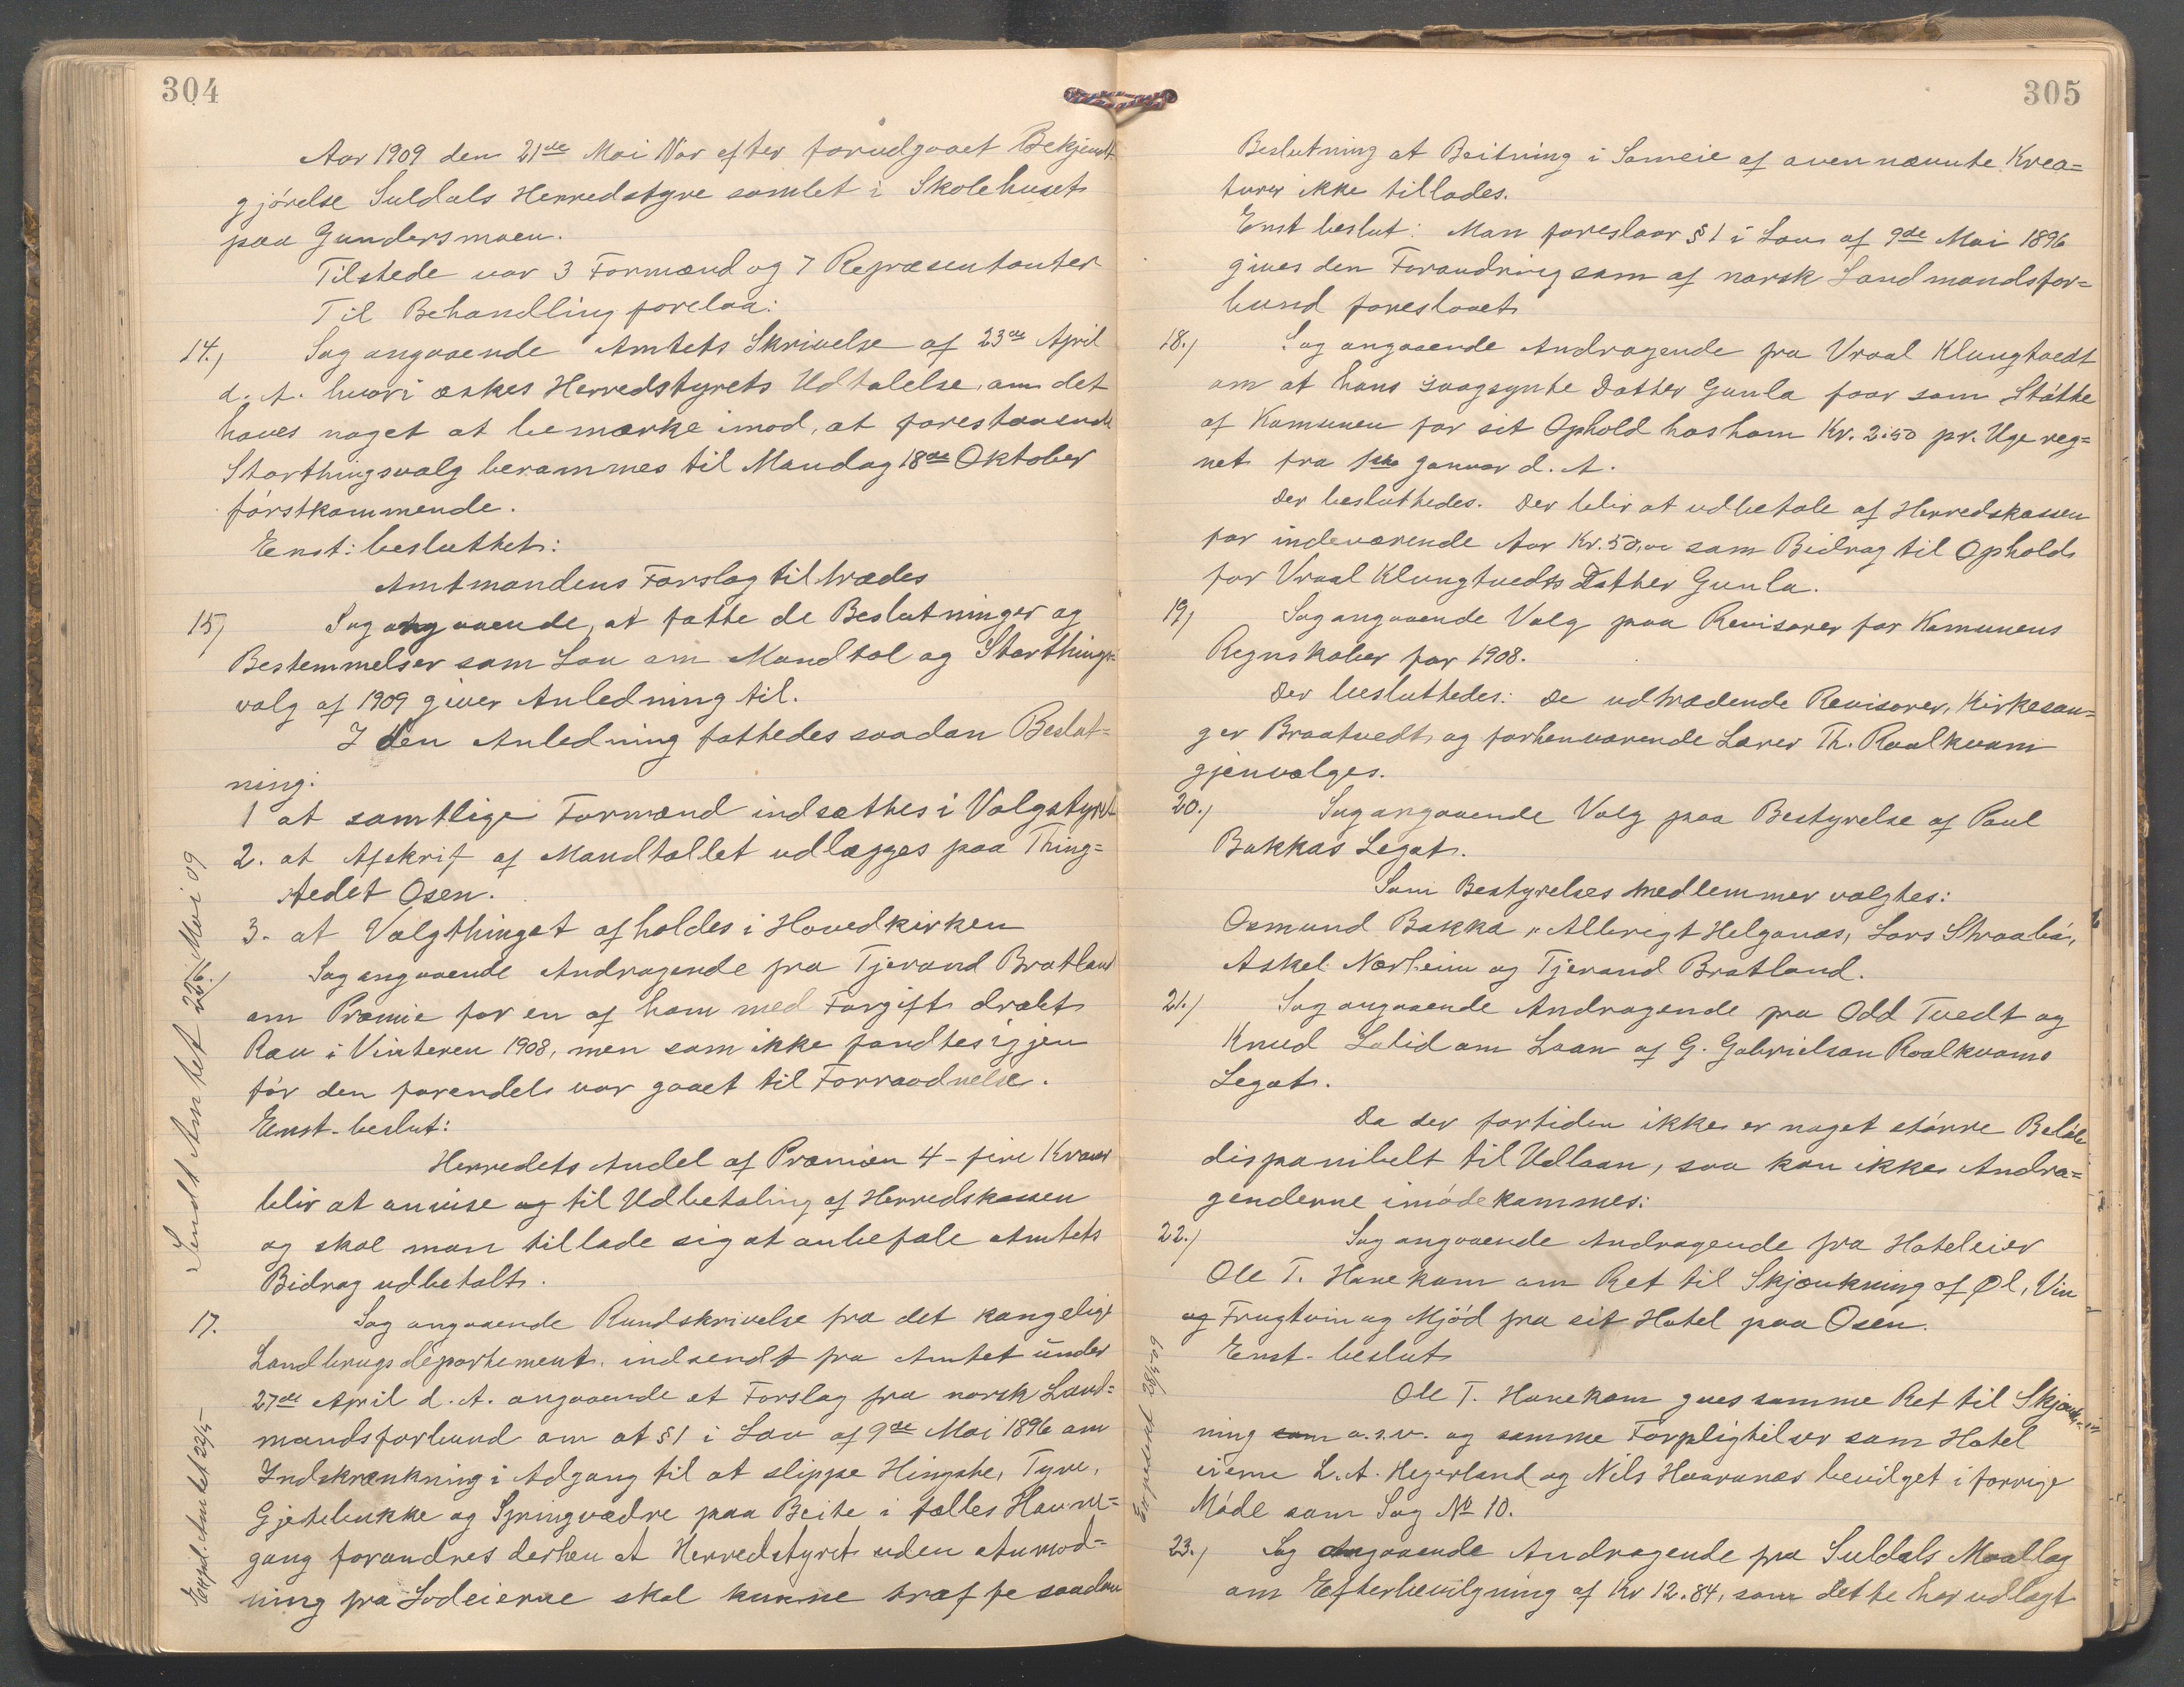 304
Aar 1909 den 21de Mai Var efter forudgaaet Bekjendt
gjörelse Suldals Herredstyre samlet i Skolehuset
paa Gundersmoen.
Tilstede var 3 Formænd og 7 Repræsentanter
Til Behandling forelaa:
14.) Sag angaaende Amtets Skrivelse af 23de April
d. A. hvori æskes Herredstyrets Udtalelse, om det
haves noget at bemærke imod, at forestaaende
Storthingsvalg berammes til Mandag 18de Oktober
förstkommende.
Enst: besluttet:
Amtmandens Forslag tiltrædes
15) Sag angaaende, at fatte de Beslutninger og
Bestemmelser som Lov om Mandtal og Storthings-
valg af 1909 giver Anledning til.
I den Anledning fattedes saadan Beslut=
ning:
1 at samtlige Formænd indsættes i Valgstyret
2. at Afskrif af Mandtallet udlægges paa Thing=
stedet Osen.
3. at Valgthinget afholdes i Hovedkirken
16.) Sag angaaende Andragende fra Tjerand Bratland
om Præmie for en af ham med Forgift dræbt
Ræv i Vinteren 1908, men som ikke fandtes igjen
för den forendel var gaaet til Forraadnelse.
Enst. beslut:
Herredets Andel af Præmien 4 - fire Kroner
blir at anvise og til Udbetaling af Herredskassen
og skal man tillade sig at anbefale Amtets
Bidrag udbetalt.
17. Sag angaaende Rundskrivelse fra det kongelige
Landbrugsdepartement. indsendt fra Amtet under
27de April d. A. angaaende et Forslag fra norsk Land=
mandsforbund om at § 1 i Lov af 9de Mai 1896 om
Indskrænkning i Adgang til at slippe Hingste, Tyre,
Gjetebukke og Springvædre paa Beite i fælles Havne=
gang forandres derhen at Herredstyret uden Anmod=
ning fra Lodeierne skal kunne træffe saadan
Sendt Amtet 22/ Mai 09
Exped. Amtet 22/5
305
Beslutning at Beitning i Sameie af ovennævnte Krea=
turer ikke tillades.
Enst beslut: Man foreslaar § 1 i Lov af 9de Mai 1896
gives den Forandring som af norsk Landmandsfor=
bund foreslaaet
18.) Sag angaaende Andragende fra Vraal Klungtvedt
om at hans svagsynte Datter Gunla faar som Stötte
af Kommunen for sit Ophold hos ham Kr. 2.50 pr. Uge reg=
net fra 1ste Januar d. A.
Der besluttedes. Der blir at udbetale af Herredskassen
for indeværende Aar Kr. 50,00 som Bidrag til Ophold
for Vraal Klungtvedts Datter Gunla.
19) Sag angaaende Valg paa Revisorer for Komunens
Regnskaber for 1908.
Der besluttedes: De udtrædende Revisorer, Kirkesan=
ger Braatvedt og forhenværende Lærer Th. Roalkvam
gjenvælges.
20.) Sag angaaende Valg paa Bestyrelse af Paul
Bakkas Legat.
Som Bestyrelses medlemmer valgtes:
Osmund Bakka, Albrigt Helganæs, Lars Straabö,
Askel Nærheim og Tjerand Bratland.
21.) Sag angaaende Andragende fra Odd Tvedt og
Knud Lalid om Laan af G. Gabrielsen Roalkvams
Legat.
Da der fortiden ikke er noget större Belöb
disponibelt til Udlaan, saa kan ikke Andra=
genderne imödekommes:
22.) Sag angaaende Andragende fra Hoteleier
Ole T. Hanekam om Ret til Skjænkning af Øl, Vin
og Frugtvin og Mjöd fra sit Hotel paa Osen.
Enst. beslut
Ole T. Hanekam gives samme Ret til Skjænk=
ning som o.s.v. og samme Forpligtelser som Hotel
eierne L. A. Hegerland og Nils Hvaranæs bevilget i forrige
Möde som Sag No 10.
Expederet 28/5 09
23.) Sag angaaende Andragende fra Suldals Maallag
om Efterbevilgning af Kr 12.84, som dette har udlagt